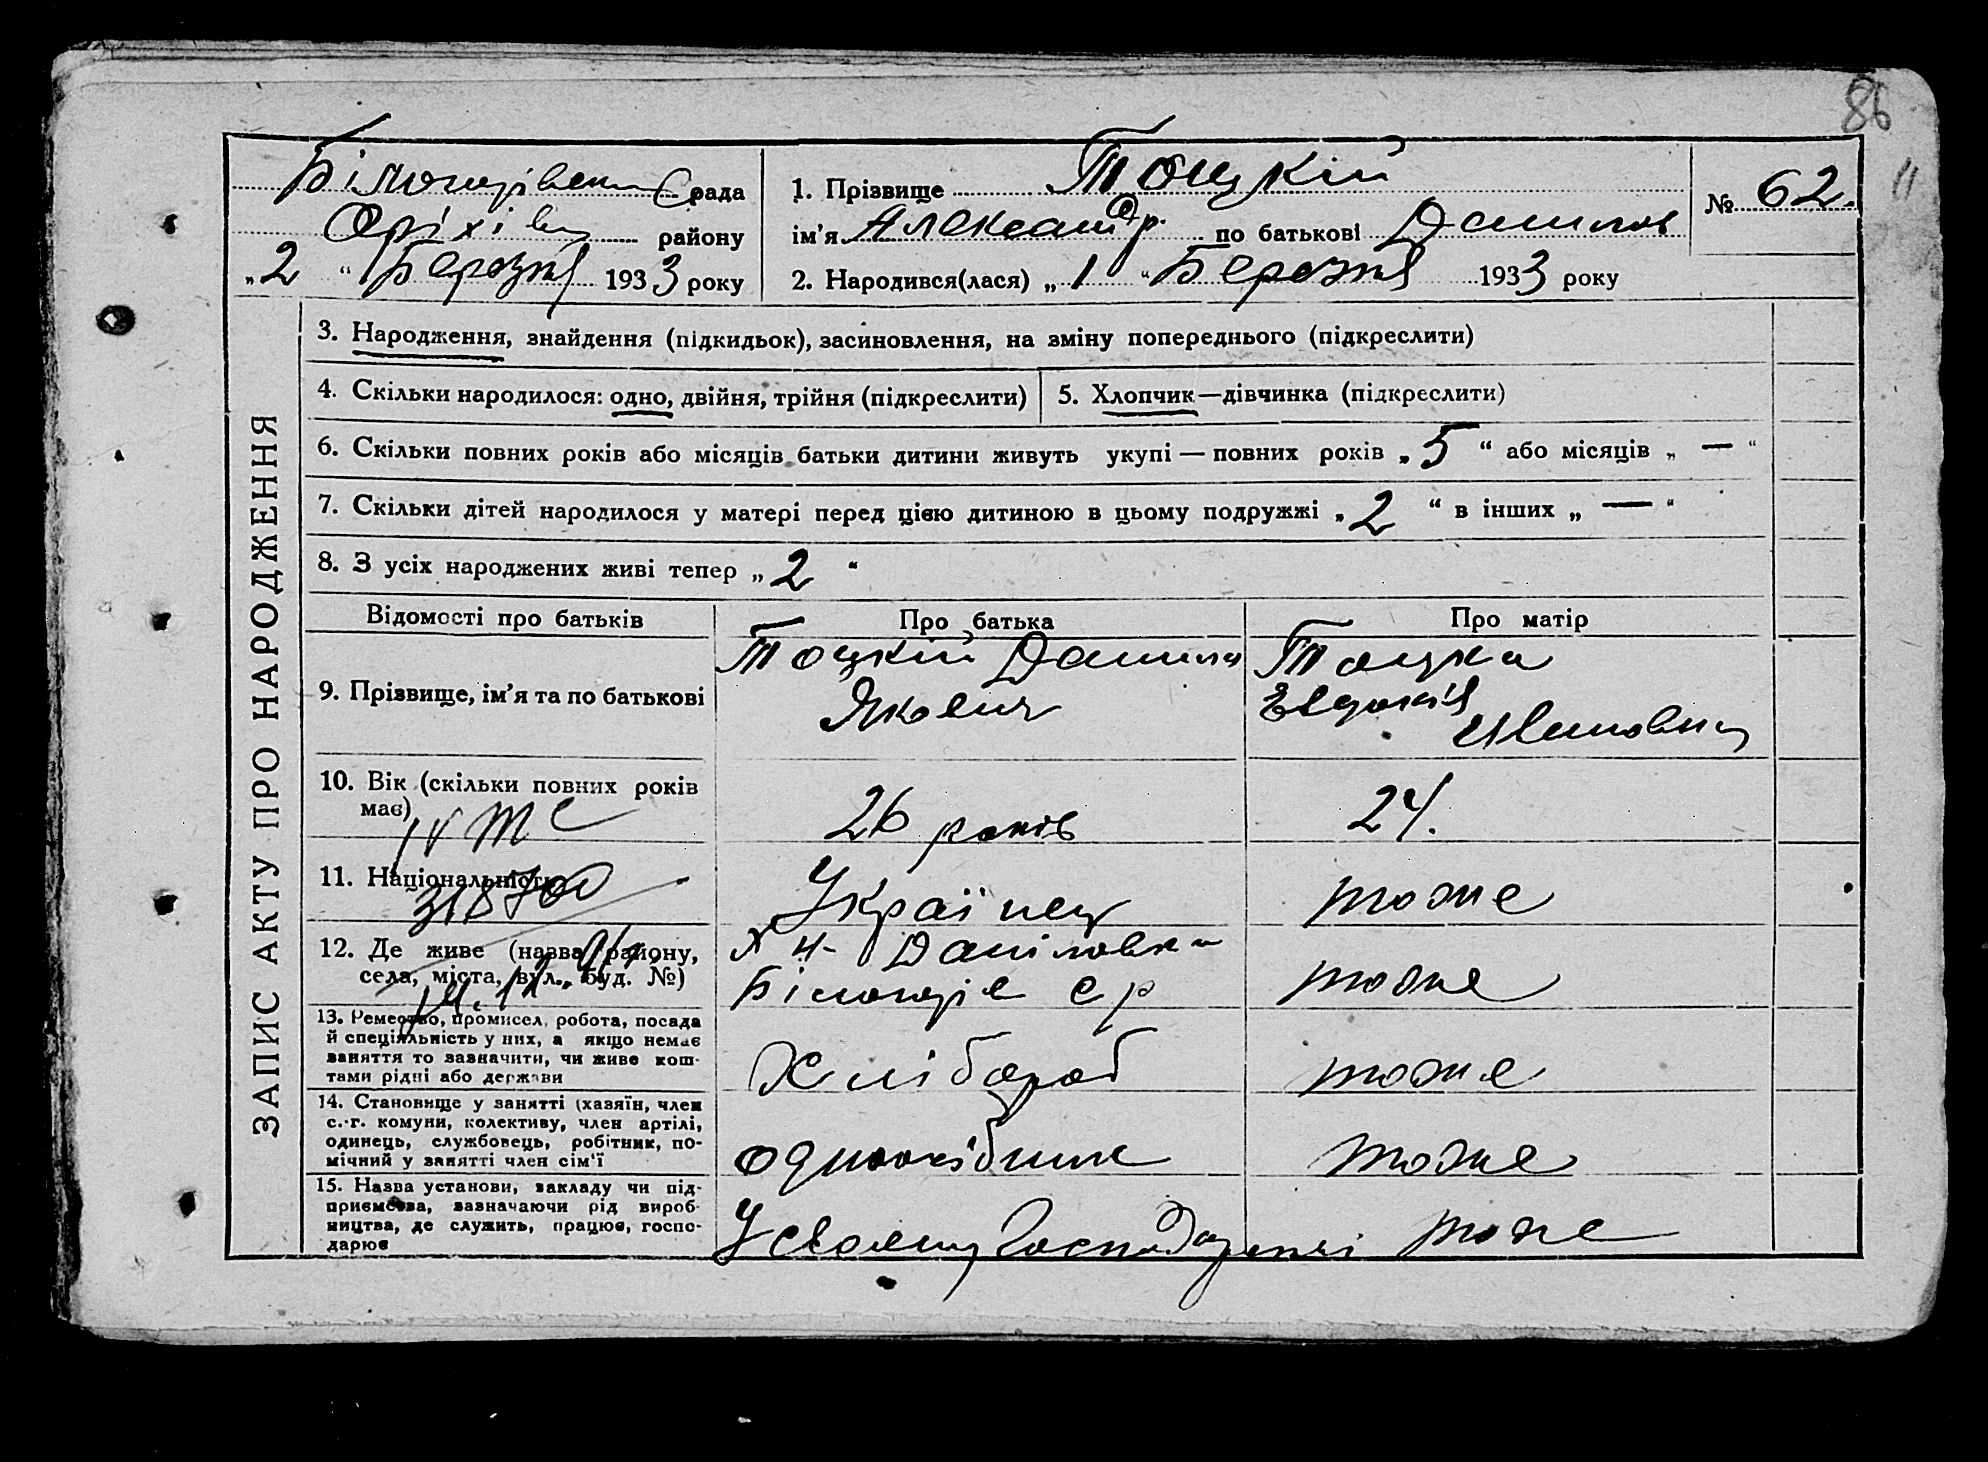 86
Білогорівськ С рада
Оріхівськ району
„2“ Березня 1933 року
1. Прізвище Тоцкій
ім’я Александр. по батькові Данилов
2. Народився(лася) „1“ Березня 1933 року
№ 62.
11
ЗАПИС АКТУ ПРО НАРОДЖЕННЯ
3. Народження, знайдення (підкидьок), засиновлення, на зміну попереднього (підкреслити)
4. Скільки народилося: одно, двійня, трійня (підкреслити)
5. Хлопчик—дівчинка (підкреслити)
6. Скільки повних років або місяців батьки дитини живуть укупі — повних років „5“ або місяців „—“
7. Скільки дітей народилося у матері перед цією дитиною в цьому подружжі „2“ в інших „—“
8. З усіх народжених живі тепер „2“
Відомості про батьків
Про батька
Про матір
9. Прізвище, ім’я та по батькові
Тоцкій Данило
Якович
Тоцка
Евдокія
Ивановна
10. Вік (скільки повних років
має)
26 років
24.
11. Національність
318700
Українец
тоже
12. Де живе (назва району,
села, міста, вул., буд. №)
Х Н-Даніловка
Білогорів с р
тоже
13. Ремество, промисел, робота, посада
й спеціяльність у них, а якщо немає
заняття то зазначити, чи живе кош-
тами рідні або держави
Хлібороб
тоже
14. Становище у занятті (хазяїн, член
с.-г. комуни, колективу, член артілі,
одинець, службовець, робітник, по-
мічний у занятті член сім’ї
одноосібник
тоже
15. Назва установи, закладу чи під-
приємства, зазначаючи рід вироб-
ництва, де служить, працює, госпо-
дарює
У своему Господарстві
тоже